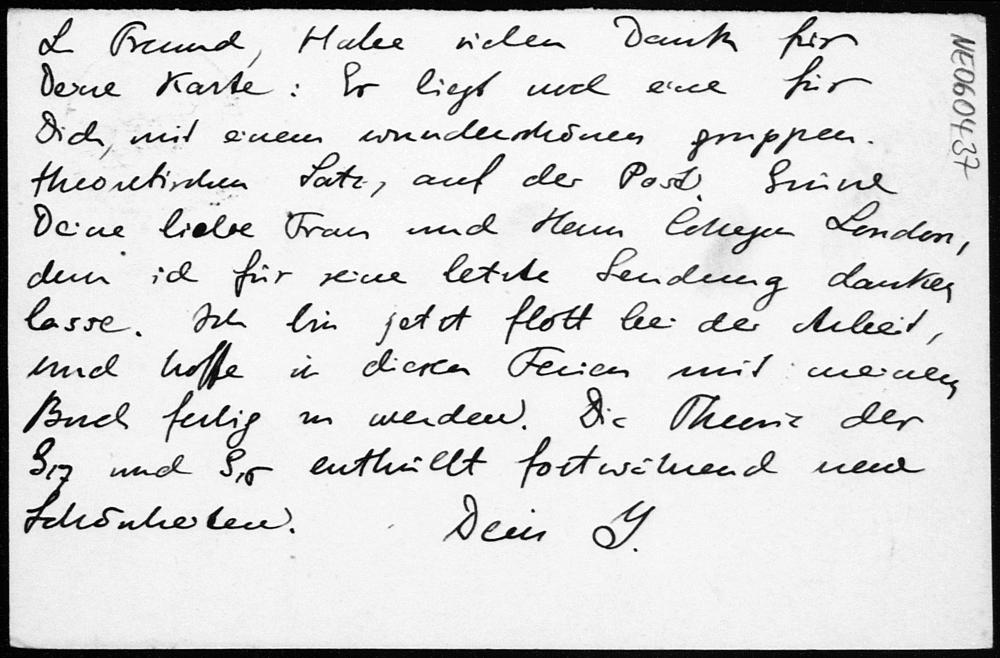 L Freund, Habe vielen Dank für
Deine Karte: Es liegt noch eine für
Dich, mit einem wunderschönen gruppen-
theoretischen Satz, auf der Post. Grüße
Deine liebe Frau und Herrn London,
dem ich für seine letzte Sendung danken
lasse. Ich bin jetzt flott bei der Arbeit,
und hoffe in diesen Ferien mit meinem
Buch fertig zu werden. Die Theorie der
und enthüllt fortwährend neue
Schönheiten. Dein
NE060437